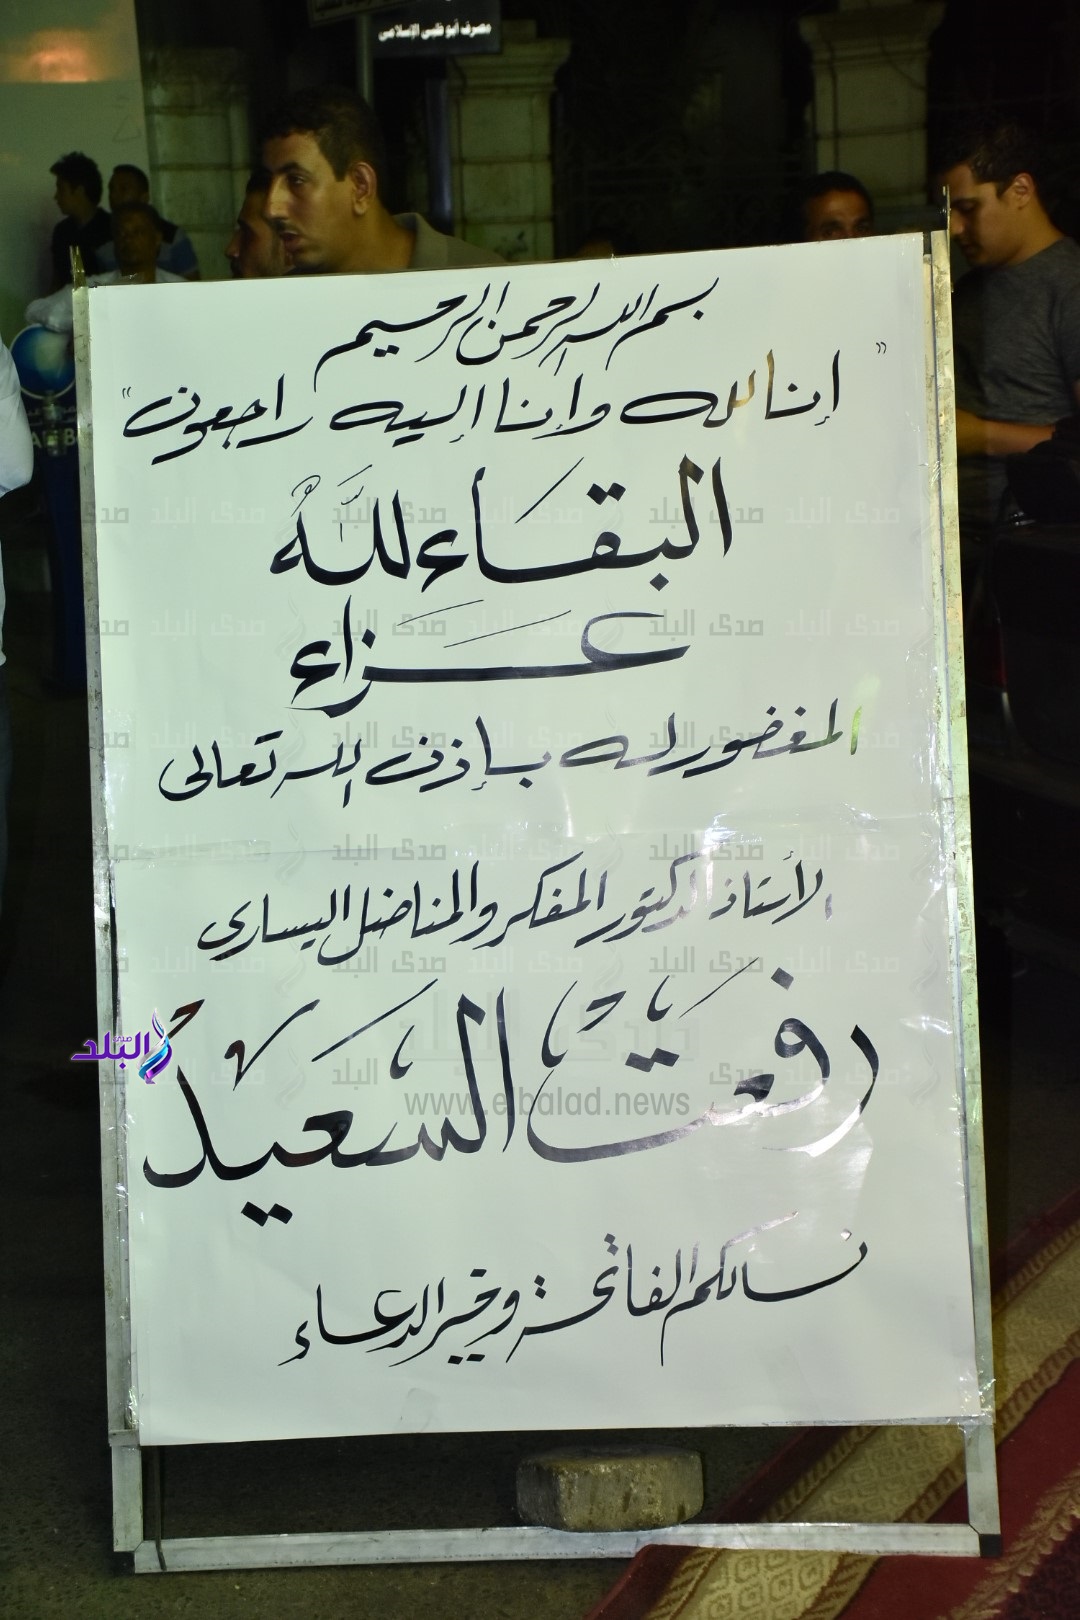 مصرف أبوظبي الإسلامي
بسم الله الرحمن الرحيم
"إنا لله وإنا إليه راجعون"
البقاء لله
عزاء
المغفور له بإذن الله تعالى
الأستاذ الدكتور المفكر والمناضل اليساري
رفعت السعيد
نسألكم الفاتحة وخير الدعاء
صدى البلد
www.elbalad.news